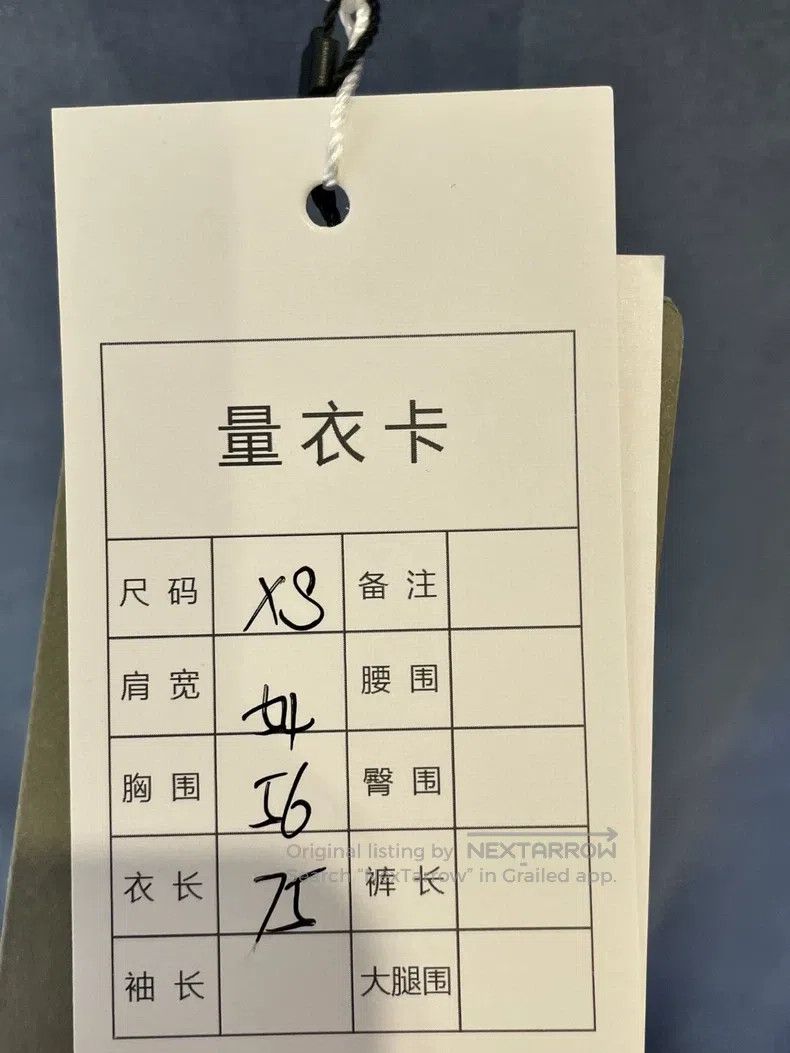 量衣卡
尺码 XS 备注
肩宽 54 腰围
胸围 56 臀围
Original listing by NEXTARROW
Search "NexTarrow" in Grailed app.
衣长 75 裤长
袖长 大腿围